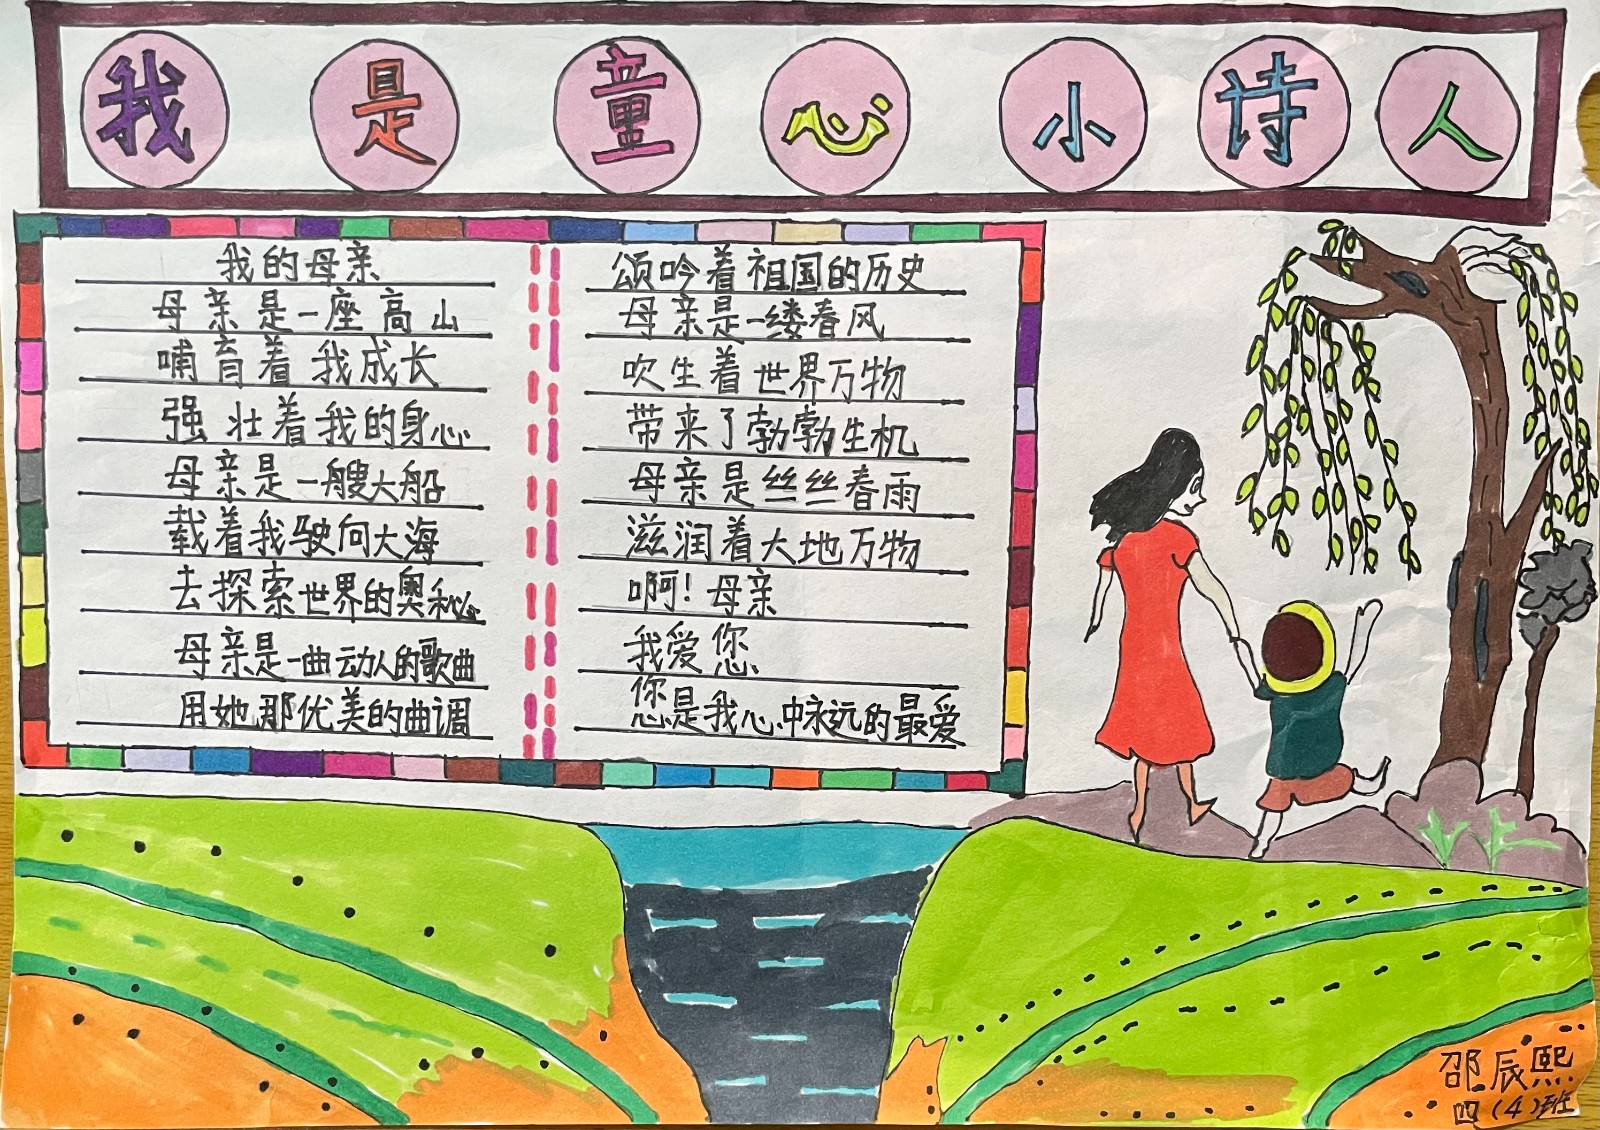 我是童心小诗人
我的母亲
母亲是一座高山
哺育着我成长
强壮着我的身心
母亲是一艘大船
载着我驶向大海
去探索世界的奥秘
母亲是一曲动人的歌曲
用她那优美的曲调
颂吟着祖国的历史
母亲是一缕春风
吹生着世界万物
带来了勃勃生机
母亲是丝丝春雨
滋润着大地万物
啊！母亲
我爱您
您是我心中永远的最爱
邵辰熙
四（4）班